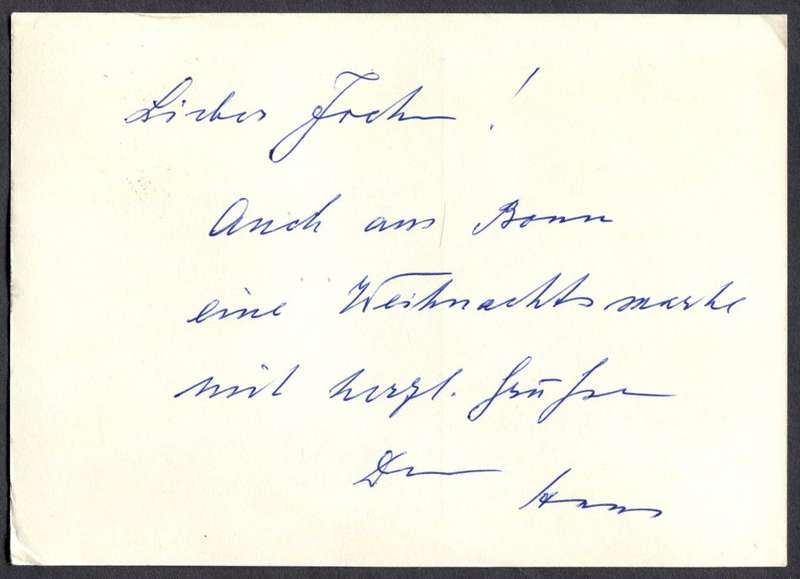 Lieber Joch!
Auch aus Bonn
eine Weihnachtsmarke
mit herzl. Grüßen
Dein Hans